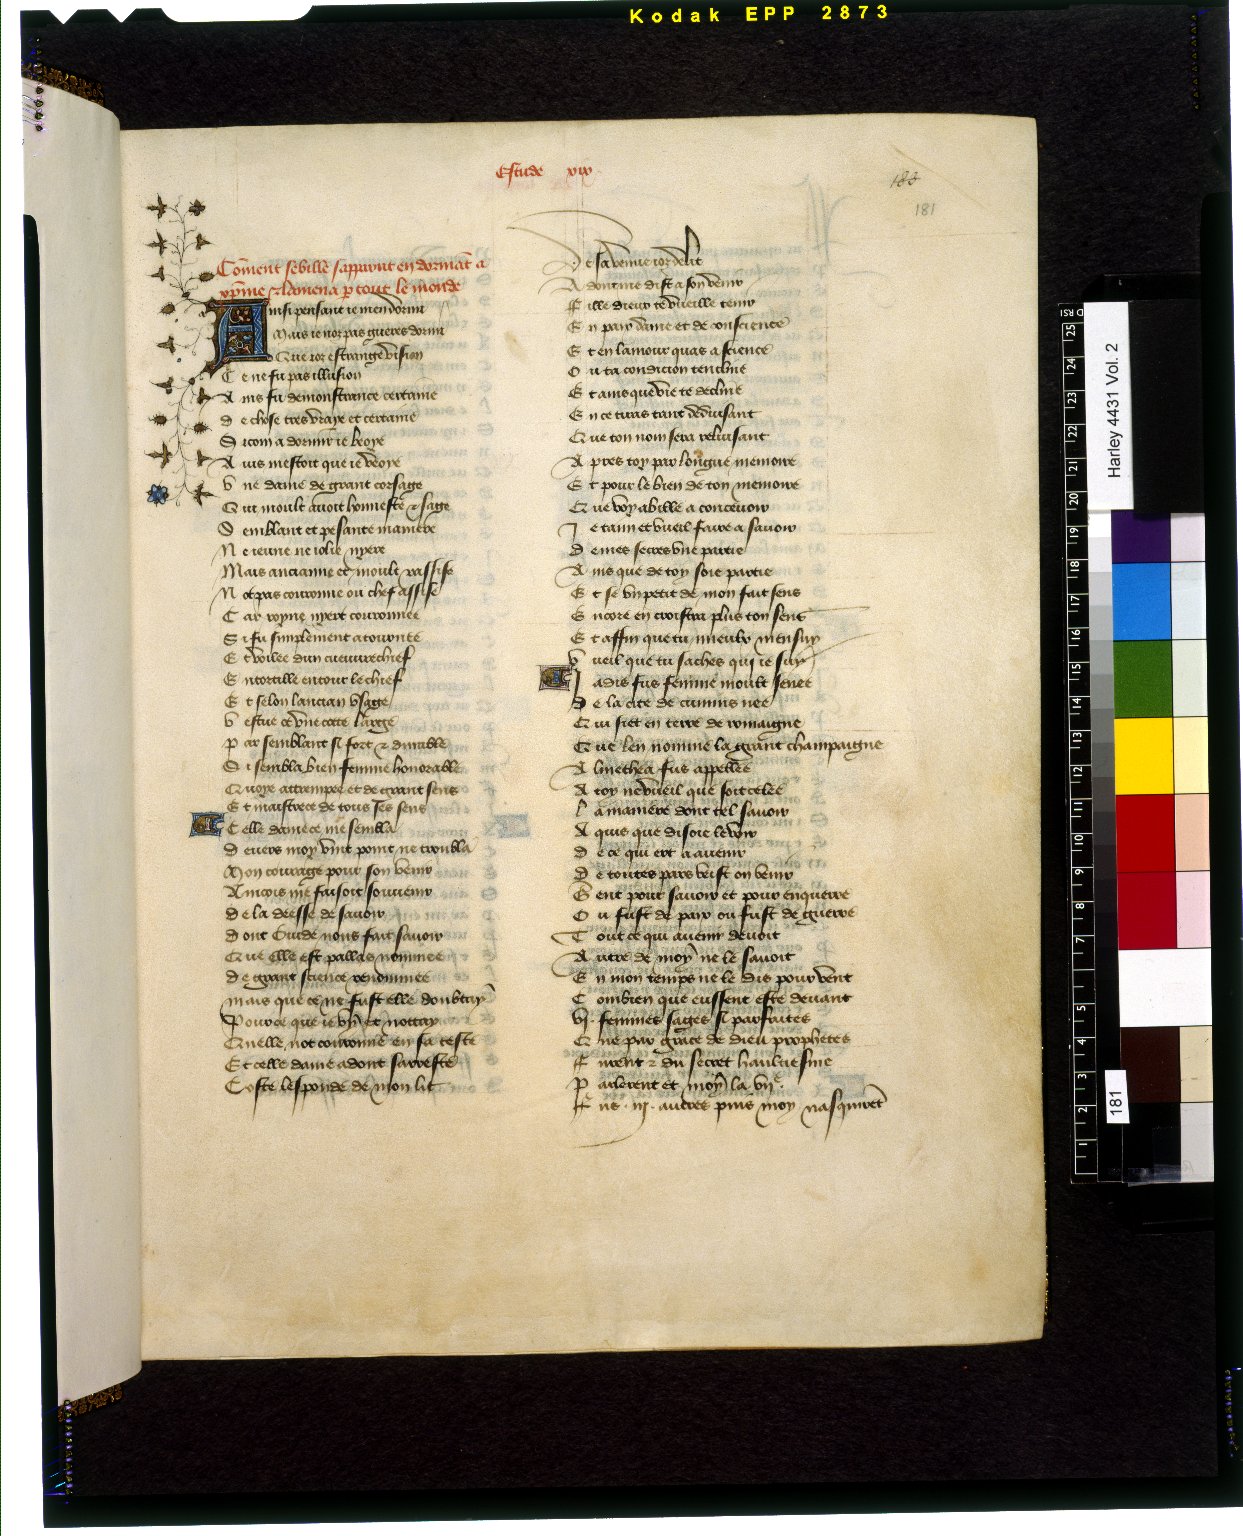 Kodak EPP 2873
Estude xix
183
181
Cōment sebille sapparut en dormāt a
xpīne et lamena p tout le monde
Ainsi pensant ie mendormi
Mais ie noz pas gueres dormi
Que ioz estrange vision
Ce ne fu pas illusion
Ains fu demonstrance certaine
de chose tres vraye et certaine
Si com a dormir ie beoye
Auis mestoit que ie veoye
Vne dame de grant corsage
Qui moult auoit honneste et sage
Semblant et pesante maniere
Ne ieune ne iolie nyere
Mais ancianne et moult rassise
Not pas couronne ou chef assise
Car royne nyert couronnee
Si fu simplement atournee
Et voilee dun cueuurechief
Entortille entour le chief
Et selon lancian vsage
Vestue ot vne cotte large
Par semblant si fort et durable
Si sembla bien femme honorable
Quoye attrempee et de grant sens
Et maistrece de tous ses sens
Celle dame ce me sembla
Deuers moy vint point ne troubla
Mon courage pour son venir
Aincois me faisoit souuenir
de la deesse de sauoir
dont Ouide nous fait sauoir
Que elle est pallas nommee
de grant science renommee
mais que ce ne fust elle doubtay
Pour ce que ie vy et nottay
Quelle not couronne en sa teste
Et celle dame adont sarreste
Coste lesponde de mon lit
De sa venue ioz delit
Adont me dist a son venir
Fille dieux te vueille tenir
En paix dame et de conscience
Et en lamour quas a science
Ou ta condicion tencline
Et ains que vie te decline
En ce tuas tant deduisant
Que ton nom sera reluisant
Apres toy par longue memoire
Et pour le bien de ton memoire
Que voy abille a conceuoir
Je taim et vueil faire a sauoir
de mes secres vne partie
Ains que de toy soie partie
Et se vn petit de mon fait sens
Encore en croistra plus ton sens
Et affin que tu mieulx men suy
Vueil que tu saches qui ie suy
Jadis fus femme moult senee
De la cite de cumins nee
Qui siet en terre de romaigne
Que len nomme la grant champaigne
Almethea fus appellee
A toy ne vueil que soit celee
La maniere dont tel sauoir
Aquis que disoie le voir
De ce qui ert a auenir
De toutes pars veist on venir
Gent pour sauoir et pour enquerre
Ou fust de paix ou fust de guerre
Tout ce qui auenir deuoit
Autre de moy ne le sauoit
En mon temps ne le dis pour vent
Combien que eussent este deuant
vi. femmes sages si parfaites
Que par grace de dieu prophetes
Furent et du secret haultiesme
Parlerent et moy la vije.
Fus . iij. autres puis moy nasquirēt
Harley 4431 Vol. 2
181
25
24
23
22
21
20
19
18
17
16
15
14
13
12
11
10
9
8
7
5
4
3
2
1